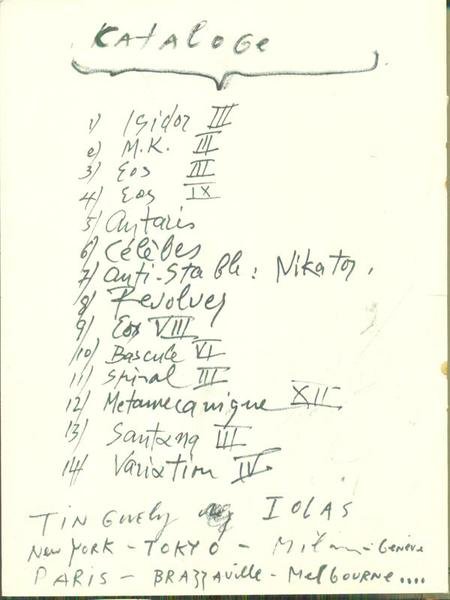 Kataloge
1) Isidor III
2) M.K. III
3) Eos III
4) Eos IX
5) Antaris
6) Célèbes
7) Anti-Stabil: Nikator,
8) Revolver
9) Eos VIII
10) Bascule VI
11) Spiral III
12) Metamecanique XII
13) Santana III
14) Variation IV
TINGUELY IOLAS
NEW YORK - TOKYO - Milan - Genève
PARIS - BRAZZAVILLE - MelBOURNE....